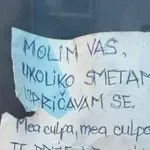 MOLIM VAS,
UKOLIKO SMETAM
ISPRIČAVAM SE.
Mea culpa, mea culpa